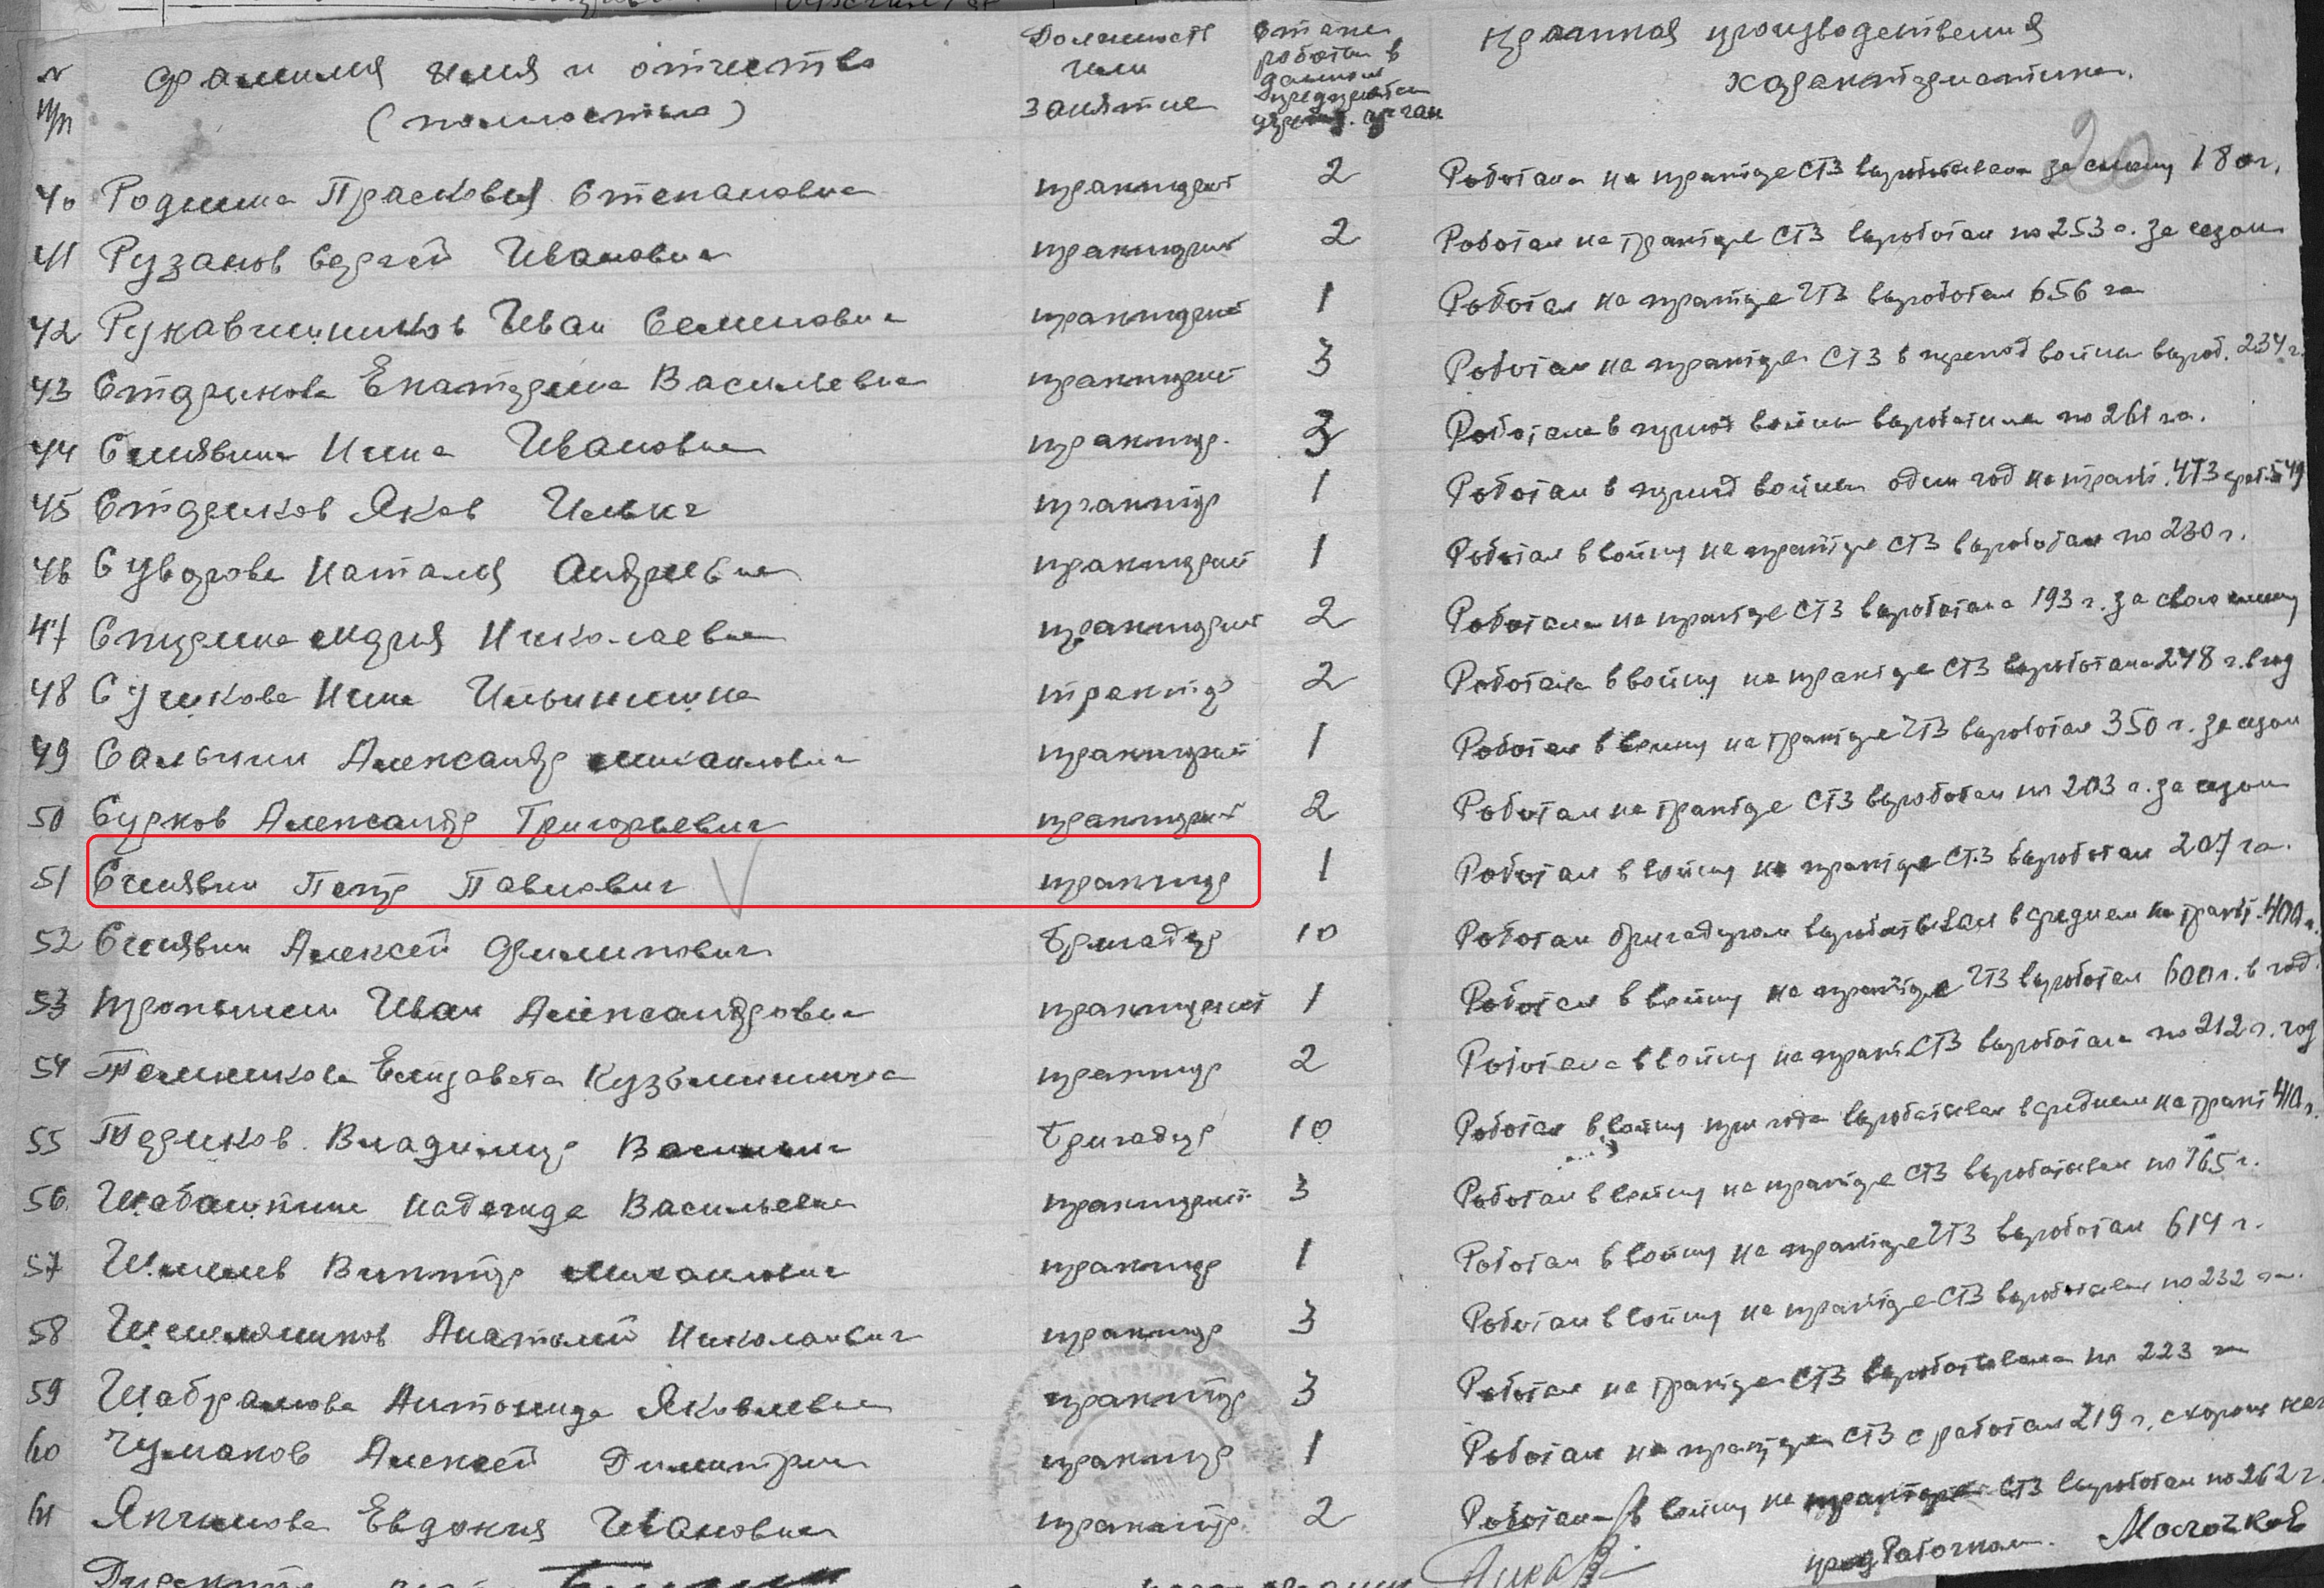 № п/п Фамилия имя и отчество (полностью) Должность или занятие Стаж работы в данном предприятии Краткая производственная характеристика.
40 Родина Прасковья Степановна тракторист 2 Работала на тракторе СТЗ вырабатывала за смену 180 г.
41 Рузанов Сергей Иванович тракторист 2 Работал на тракторе СТЗ выработал по 253 г. за сезон
42 Рукавишников Иван Семенович тракторист 1 Работал на тракторе ЧТЗ выработал 656 га
43 Старикова Екатерина Васильевна тракторист 3 Работала на тракторе СТЗ в период войны выраб. 234 г.
44 Синявина Нина Ивановна трактор. 3 Работала в период войны выработала по 261 га.
45 Стариков Яков Ильич трактор 1 Работал в период войны один год на тракт. ЧТЗ
46 Суворова Наталья Андреевна тракторист 1 Работал в войну на тракторе СТЗ выработал по 230 г.
47 Спирина Мария Николаевна тракторист 2 Работала на тракторе СТЗ выработала 193 г. за свою смену
48 Сушкова Нина Ильинична трактор 2 Работала в войну на тракторе СТЗ выработала 248 г. в год
49 Сальнин Александр Михайлович тракторист 1 Работал в войну на тракторе ЧТЗ выработал 350 г. за сезон
50 Сурков Александр Григорьевич тракторист 2 Работал на тракторе СТЗ выработал по 203 г. за сезон
51 Синявин Петр Павлович трактор 1 Работал в войну на тракторе СТЗ выработал 207 га.
52 Синявин Алексей Филипович бригадир 10 Работал бригадиром вырабатывал в среднем на тракт. 400 г.
53 Тронькин Иван Александрович тракторист 1 Работал в войну на тракторе ЧТЗ выработал 600 г. в год
54 Темникова Елизавета Кузьминична трактор 2 Работала в войну на тракт. СТЗ выработала по 212 г. год
55 Териков Владимир Васильич бригадир 10 Работал в войну три года вырабатывал в среднем на тракт 410 г.
56 Шабашкина Надежда Васильевна тракторист 3 Работал в войну на тракторе СТЗ вырабатывал по 165 г.
57 Виктор Михайлович трактор 1 Работал в войну на тракторе ЧТЗ выработал 619 г.
58 Анатолий Николаевич трактор 3 Работал в войну на тракторе СТЗ вырабатывал по 232 га.
59 Шабрамова Антонида Яковлевна трактор 3 Работал на тракторе СТЗ вырабатывала по 223 га
60 Чумаков Алексей Димитрич трактор 1 Работал на тракторе СТЗ сработал 219 г.
61 Якимова Евдокия Ивановна трактор 2 Работала в войну на тракторе СТЗ выработал по 262 г.
Молочков